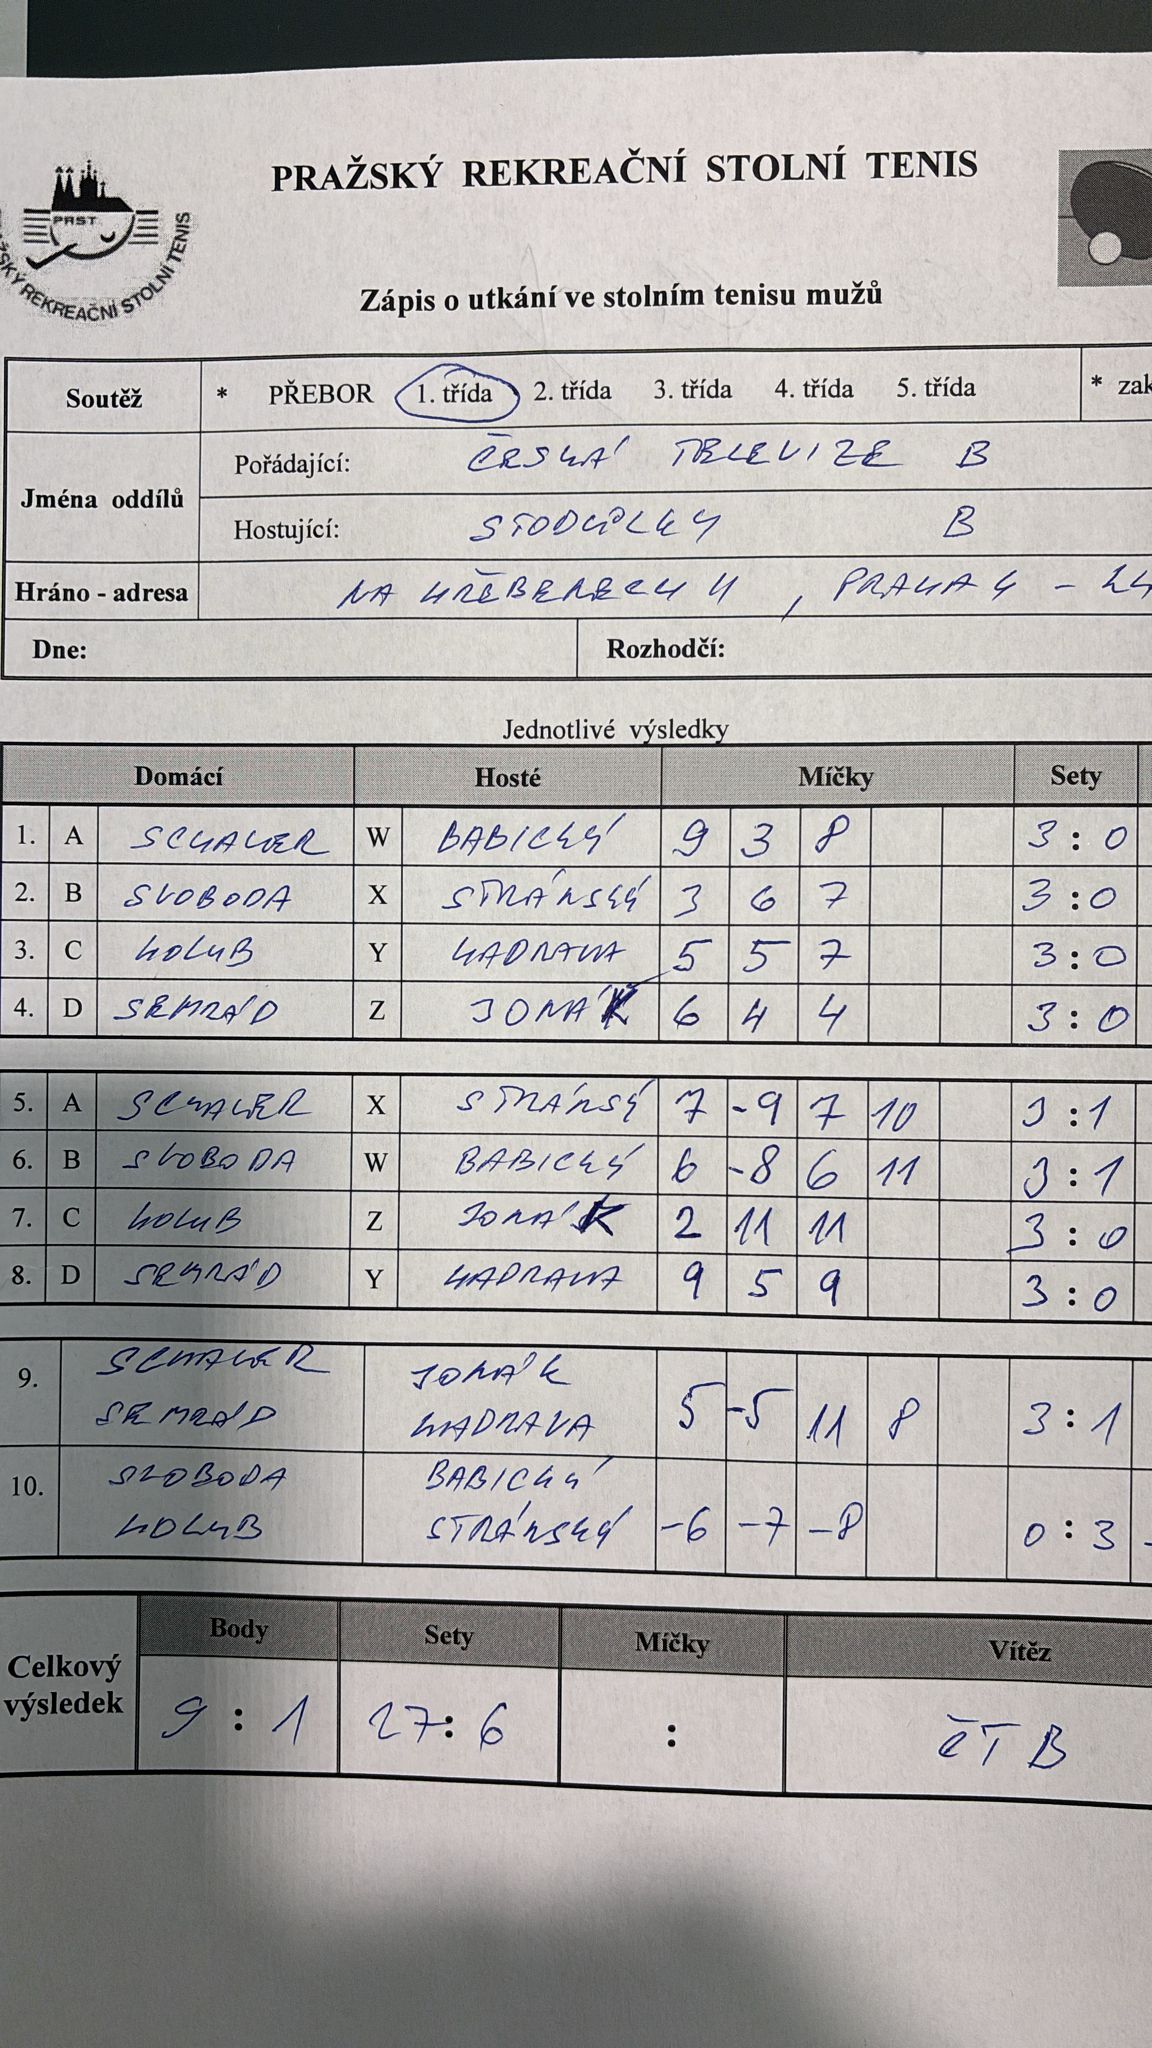 PRAŽSKÝ REKREAČNÍ STOLNÍ TENIS
PRST
PRAŽSKÝ REKREAČNÍ STOLNÍ TENIS
Zápis o utkání ve stolním tenisu mužů
Soutěž * PŘEBOR 1. třída 2. třída 3. třída 4. třída 5. třída * zak
Jména oddílů
Pořádající: ČESKÁ TELEVIZE B
Hostující: STODŮLKY B
Hráno - adresa NA HŘEBENECH II, PRAHA 4 -
Dne: Rozhodčí:
Jednotlivé výsledky
Domácí Hosté Míčky Sety
1. A SCHALER W BABICKÝ 9 3 8 3 : 0
2. B SVOBODA X STRÁNSKÝ 3 6 7 3 : 0
3. C HOLUB Y HADRAVA 5 5 7 3 : 0
4. D SEMRÁD Z JONÁK 6 4 4 3 : 0
5. A SCHALER X STRÁNSÝ 7 -9 7 10 3 : 1
6. B SVOBODA W BABICKÝ 6 -8 6 11 3 : 1
7. C HOLUB Z JONÁK 2 11 11 3 : 0
8. D SEMRÁD Y HADRAVA 9 5 9 3 : 0
9. SCHALER JONÁK
SEMRÁD HADRAVA 5 -5 11 8 3 : 1
10. SVOBODA BABICKÝ
HOLUB STRÁNSKÝ -6 -7 -8 0 : 3
Celkový výsledek
Body Sety Míčky Vítěz
9 : 1 27 : 6 : ČT B